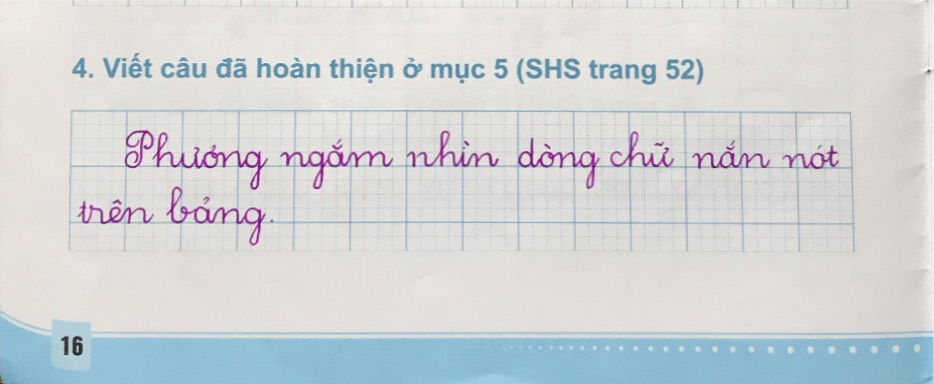 4. Viết câu đã hoàn thiện ở mục 5 (SHS trang 52)
Phương ngắm nhìn dòng chữ nắn nót
trên bảng.
16